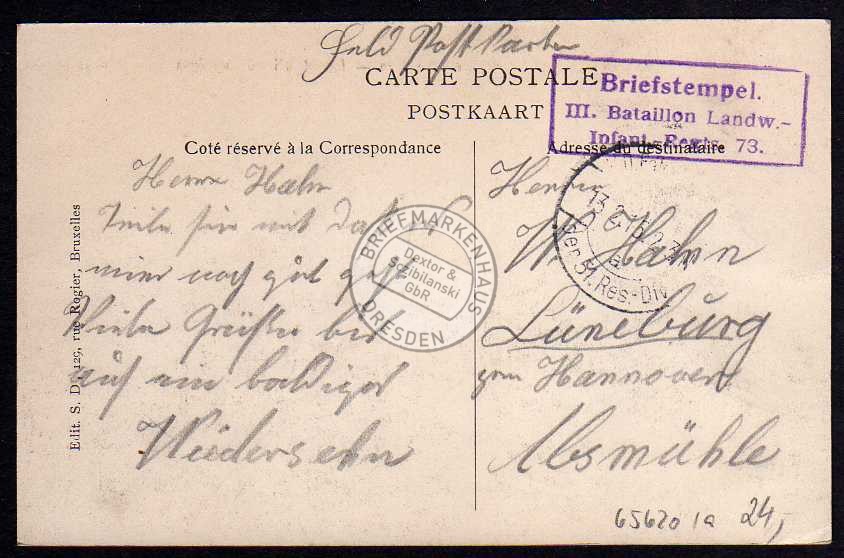 Feld Postkarte
CARTE POSTALE
POSTKAART
Briefstempel.
III. Bataillon Landw.-
Infant.-Regts. 73.
Coté réservé à la Correspondance
Adresse du destinataire
Herrn Hahn
Teile sie mit daß es
mier noch gut geht
Viele Grüße bis
auf ein baldiges
Wiedersehn
Herrn
W. Hahn
Lüneburg
Hannover
Absmühle
der 51. Res.-Div.
Edit. S. D., 129, rue Rogier, Bruxelles
BRIEFMARKENHAUS
Dextor &
S.Zibilanski
GbR
DRESDEN
65620 1a 24,-